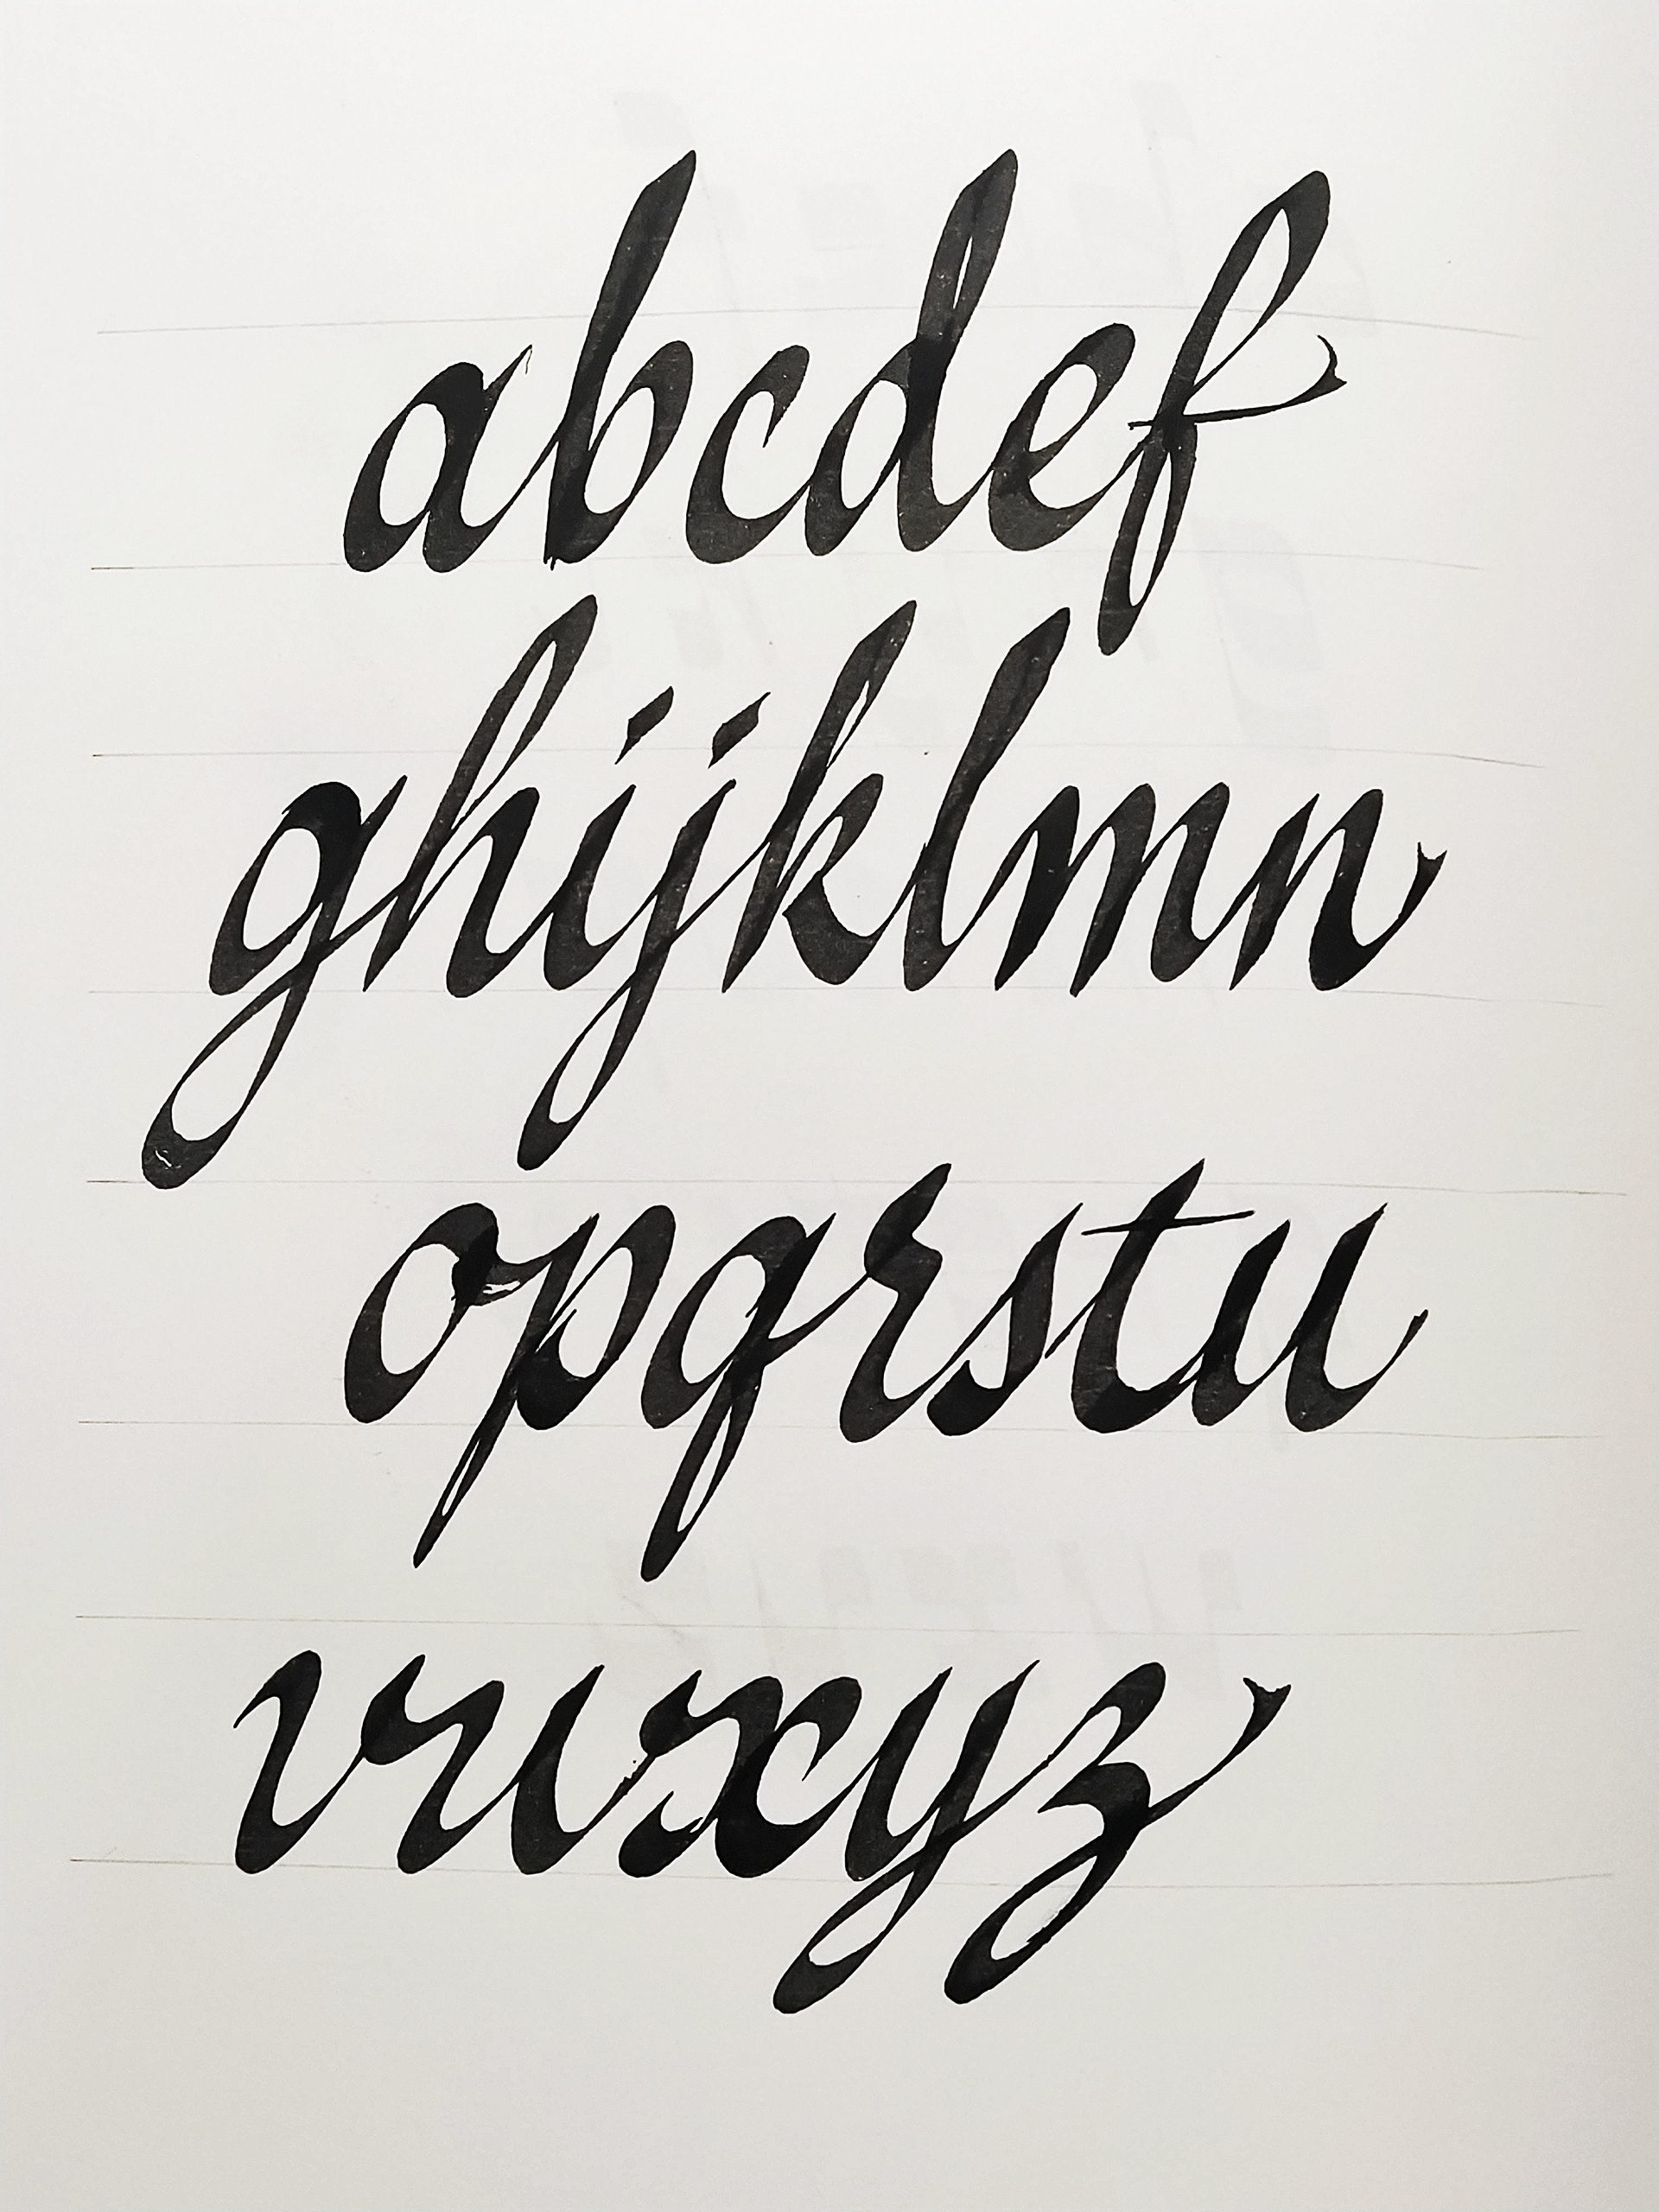 abcdef
ghijklmn
opqrstu
vwxyz